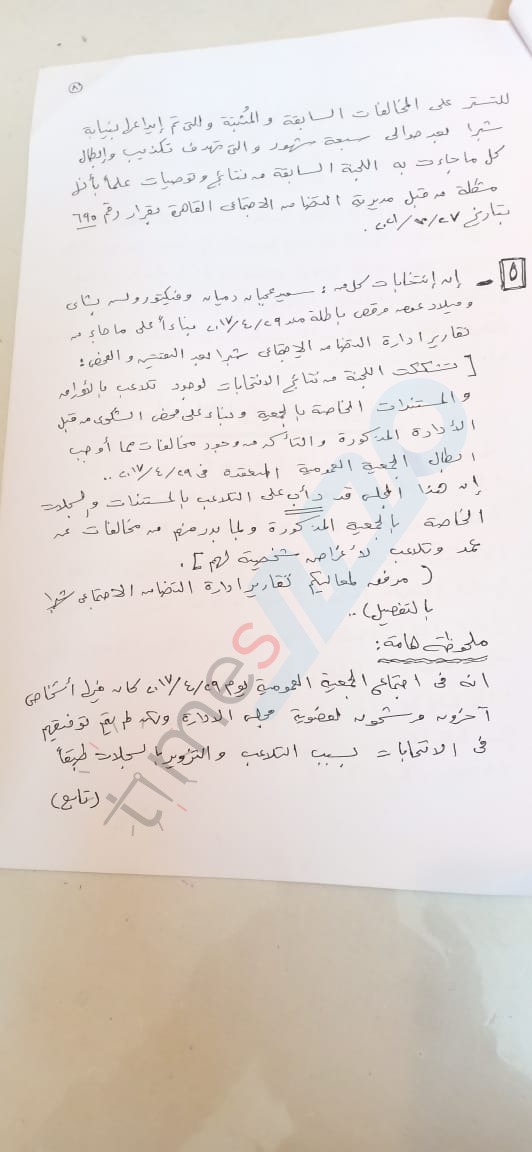 (٨)
للتستر على المخالفات السابقة والمثبتة والتى تم إيداعها بنيابة
شبرا بعد حوالى سبعة شهور والتى تهدف تكذيب وإبطال
كل ما جاءت به اللجنة السابقة من نتائج وتوصيات علماً بأنها
مشكلة من قبل مديرية التضامن الاجتماعى القاهرة بقرار رقم ٦٩٠
بتاريخ
٥ - إن إنتخابات كل من : سعيد دميان وفيكتور ونس بشاى
وميلاد عوض مرقص باطلة منذ ٢٠١٧/٤/٢٩ بناءاً على ما جاء من
تقارير ادارة التضامن الاجتماعى شبرا بعد التفتيش والفحص :
[ تشككت اللجنة من نتائج الانتخابات لوجود تلاعب بالأوراق
والمستندات الخاصة بالجمعية وبناء على فحص الشكوى من قبل
الأدارة المذكورة والتأكد من وجود مخالفات مما أوجب
ابطال الجمعية العمومية المنعقدة فى ٢٠١٧/٤/٢٩ ..
إن هذا المجلس قد دأب على التلاعب بالمستندات والسجلات
الخاصة بالجمعية المذكورة ولما بدر منهم من مخالفات عن
عمد وتلاعب لأغراض شخصية لهم ] .
( مرفق لمعاليكم تقارير ادارة التضامن الاجتماعى شبرا
بالتفصيل ) ..
ملحوظة هامة :
انه فى اجتماع الجمعية العمومية يوم ٢٠١٧/٤/٢٩ كان هناك أشخاص
آخرون مرشحون لعضوية مجلس الادارة ولكن لم يتم توفيقهم
فى الانتخابات بسبب التلاعب والتزوير بالسجلات طبقاً
(تابع)
مصر times